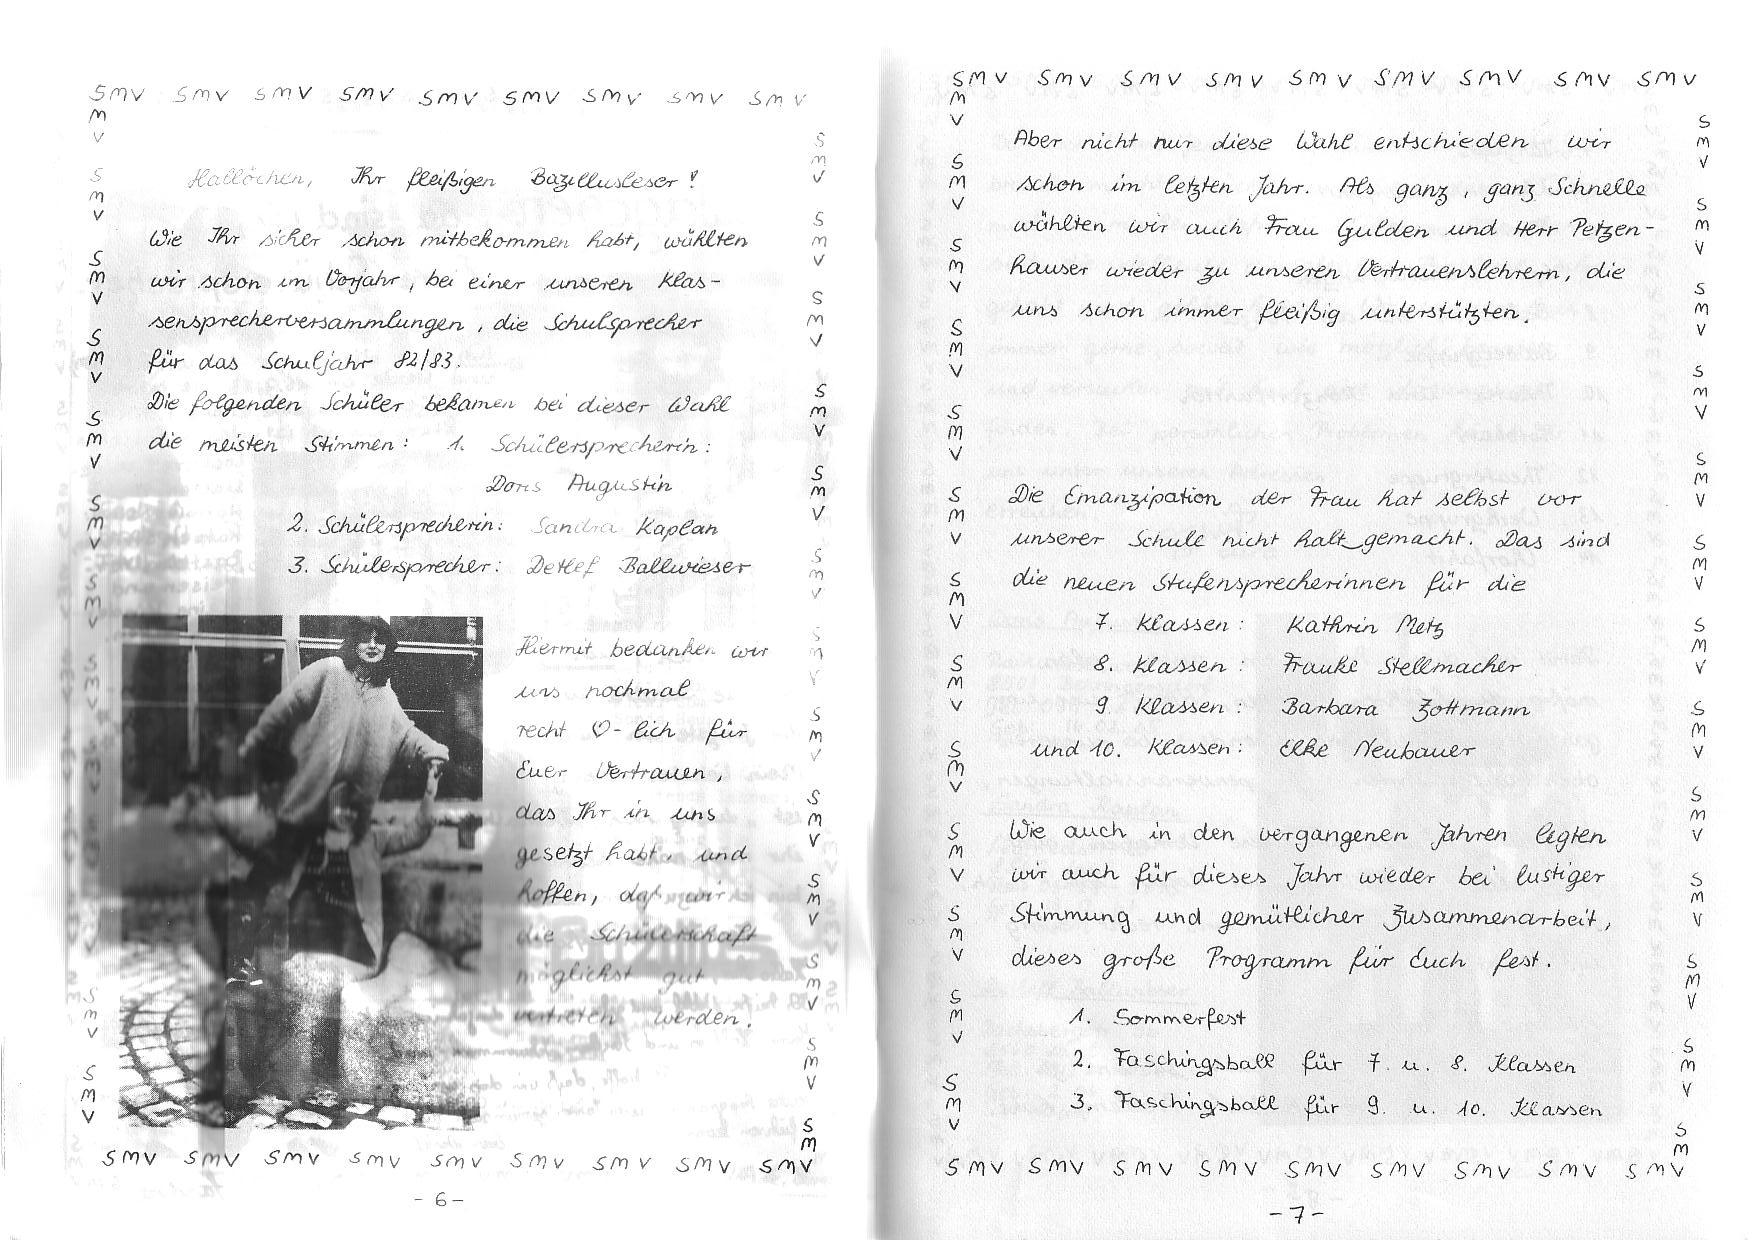 SMV SMV SMV SMV SMV SMV SMV SMV SMV
Hallöchen, Ihr fleißigen Bazillusleser!
Wie Ihr sicher schon mitbekommen habt, wählten
wir schon im Vorjahr, bei einer unseren Klas-
sensprecherversammlungen, die Schulsprecher
für das Schuljahr 82/83.
Die folgenden Schüler bekamen bei dieser Wahl
die meisten Stimmen: 1. Schülersprecherin:
Doris Augustin
2. Schülersprecherin: Sandra Kaplan
3. Schülersprecher: Detlef Ballwieser
Hiermit bedanken wir
uns nochmal
recht ♡-lich für
Euer Vertrauen,
das Ihr in uns
gesetzt habt, und
hoffen, daß wir
die Schülerschaft
möglichst gut
vertreten werden.
SMV SMV SMV SMV SMV SMV SMV SMV SMV
- 6 -
SMV SMV SMV SMV SMV SMV SMV SMV SMV
Aber nicht nur diese Wahl entschieden wir
schon im letzten Jahr. Als ganz, ganz Schnelle
wählten wir auch Frau Gulden und Herr Petzen-
hauser wieder zu unseren Vertrauenslehrern, die
uns schon immer fleißig unterstützten.
Die Emanzipation der Frau hat selbst vor
unserer Schule nicht halt_gemacht. Das sind
die neuen Stufensprecherinnen für die
7. Klassen: Kathrin Metz
8. Klassen: Frauke Stellmacher
9. Klassen: Barbara Zottmann
und 10. Klassen: Elke Neubauer
Wie auch in den vergangenen Jahren legten
wir auch für dieses Jahr wieder bei lustiger
Stimmung und gemütlicher Zusammenarbeit,
dieses große Programm für Euch fest.
1. Sommerfest
2. Faschingsball für 7. u. 8. Klassen
3. Faschingsball für 9. u. 10. Klassen
SMV SMV SMV SMV SMV SMV SMV SMV SMV
- 7 -